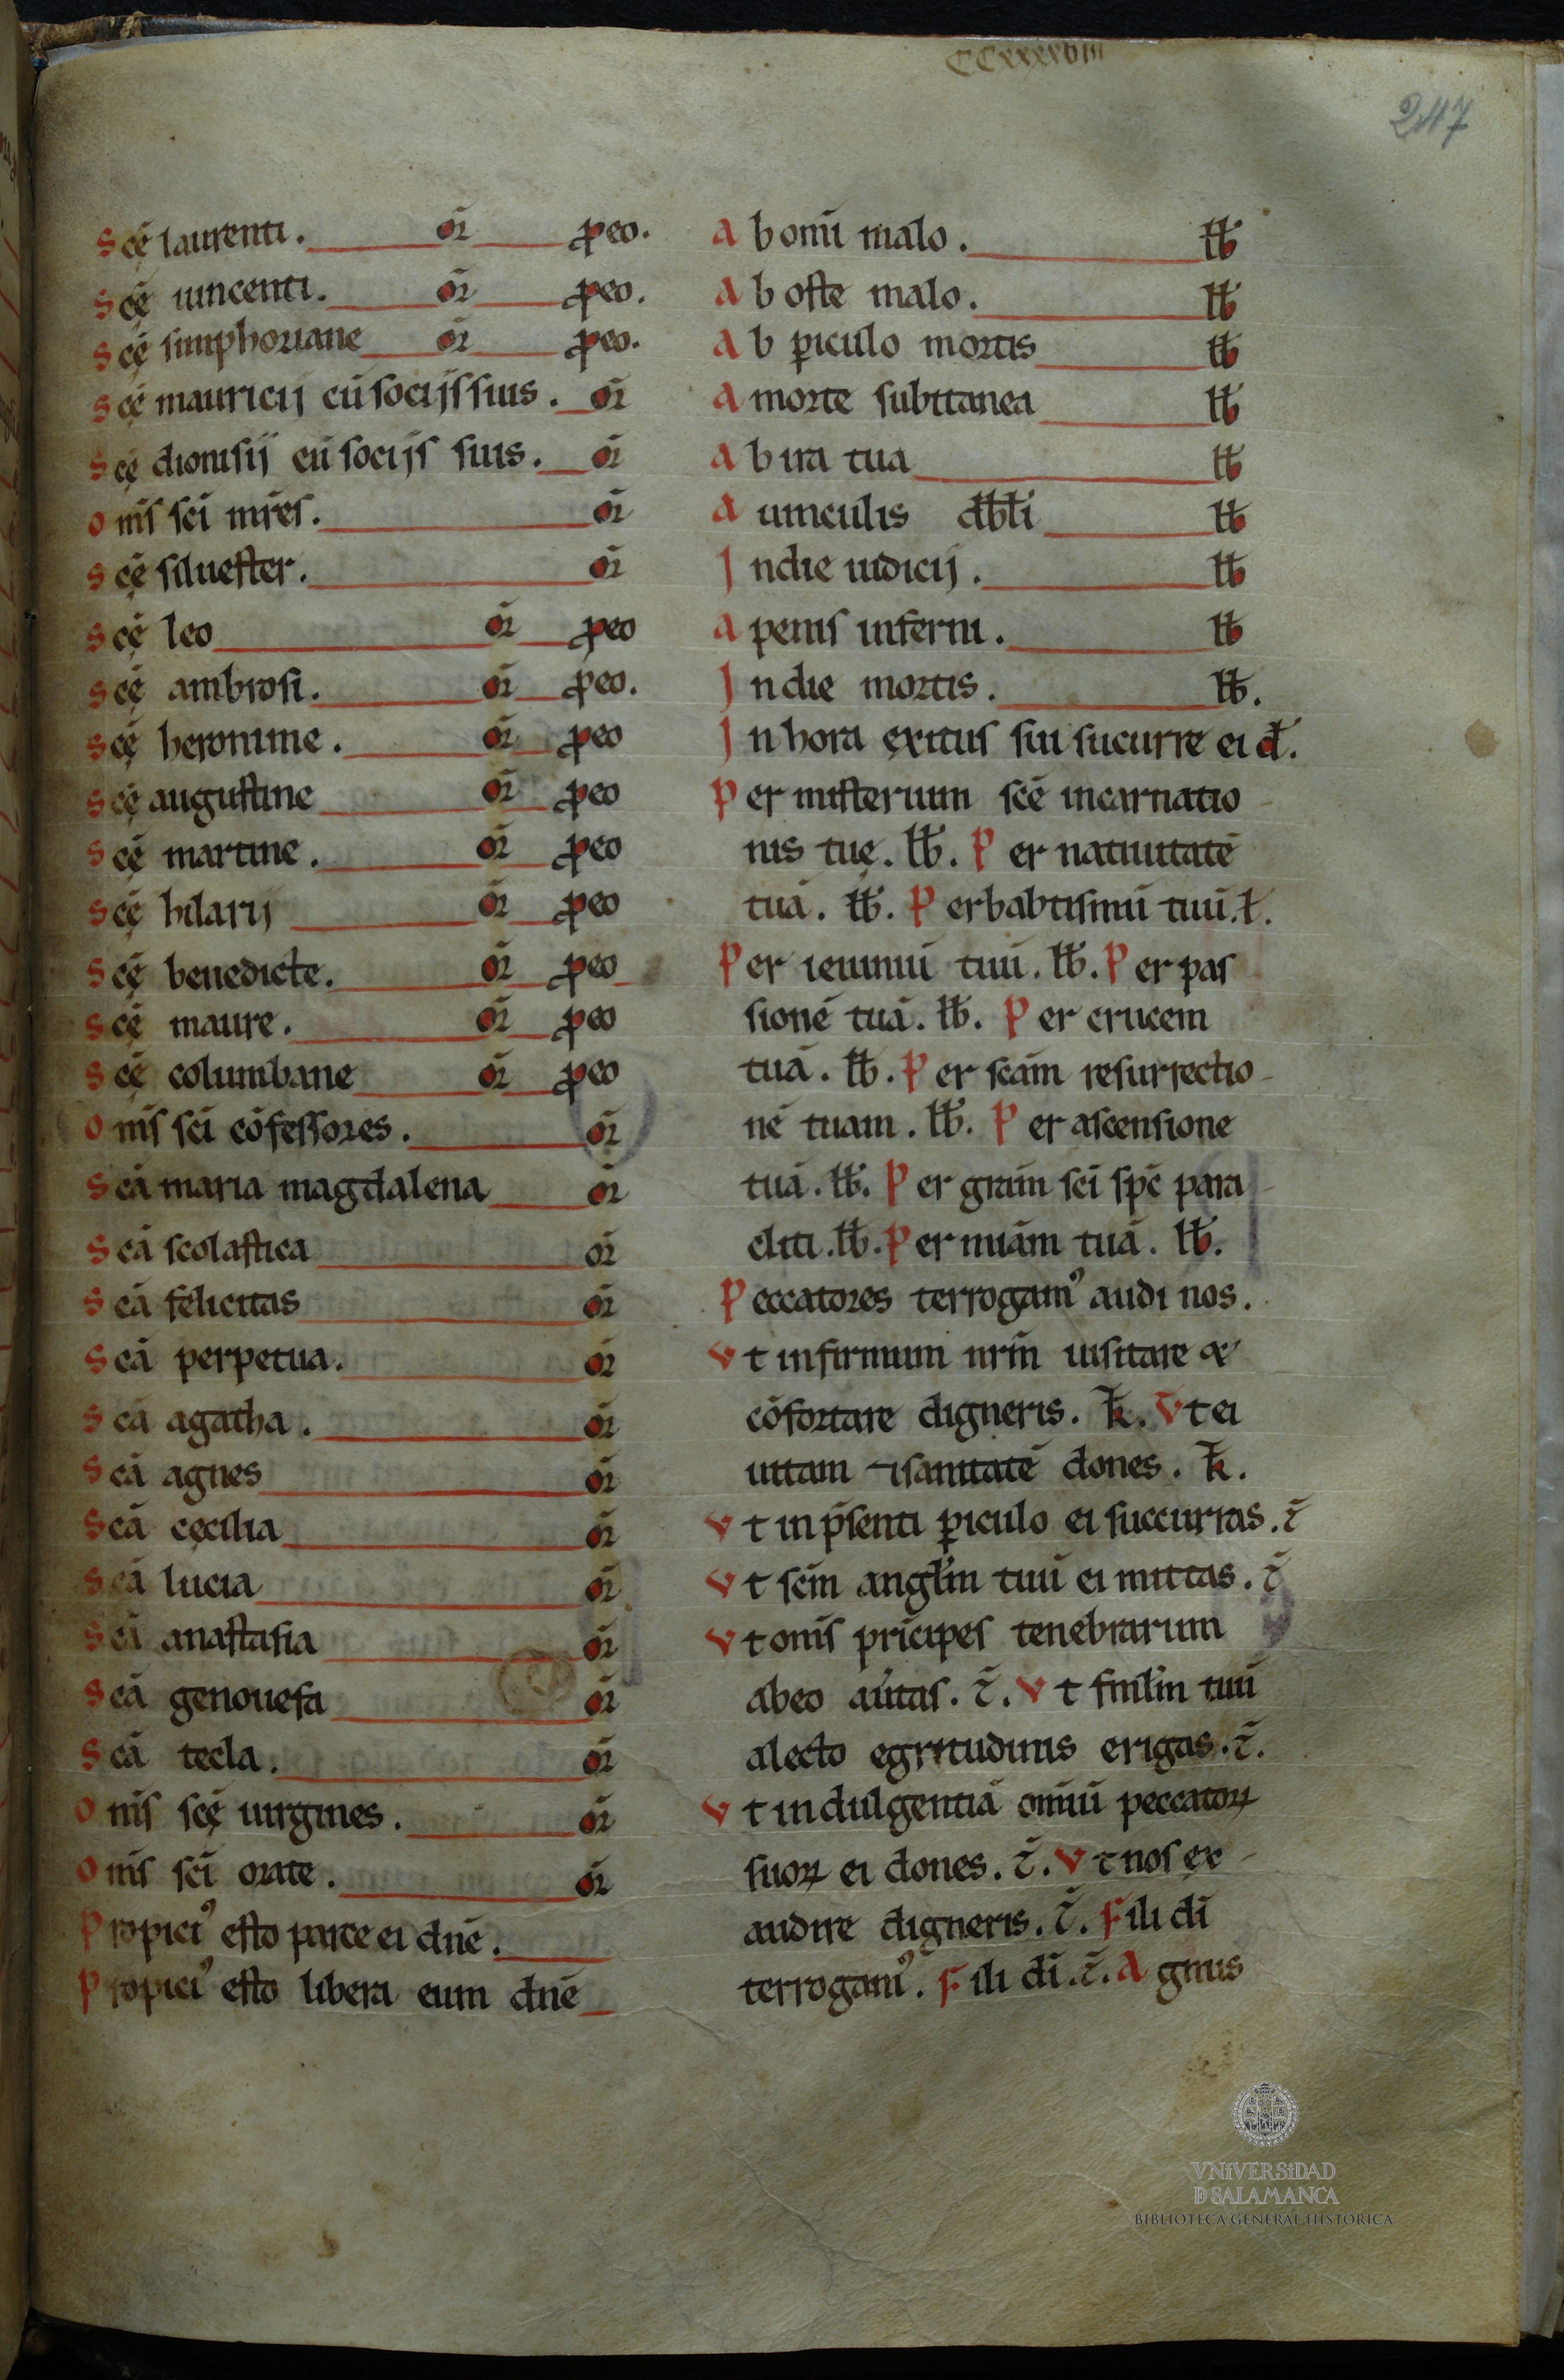 CCxxxxviii
247
Scę̄ laurenti. oŕ ꝓeo.
Scę̄ uincenti. oŕ ꝓeo.
Scę̄ simphoriane oŕ ꝓeo.
Scę̄ mauricij cū socijs suis. oŕ
Scę̄ dionisij cū socijs suis. oŕ
Onīs sc̄i mr̄es. oŕ
Scę̄ siluester. oŕ
Scę̄ leo oŕ ꝓeo
Scę̄ ambrosi. oŕ ꝓeo.
Scę̄ heronime. oŕ ꝓeo
Scę̄ augustine oŕ ꝓeo
Scę̄ martine. oŕ ꝓeo
Scę̄ hilarij oŕ ꝓeo
Scę̄ benedicte. oŕ ꝓeo
Scę̄ maure. oŕ ꝓeo
Scę̄ columbane oŕ ꝓeo
Onīs sc̄i cōfessores. oŕ
Scā maria magdalena oŕ
Scā scolastica oŕ
Scā felicitas oŕ
Scā perpetua. oŕ
Scā agatha. oŕ
Scā agnes oŕ
Scā cęcilia oŕ
Scā lucia oŕ
Scā anastasia oŕ
Scā genouefa oŕ
Scā tecla. oŕ
Onīs scę̄ uirgines. oŕ
Onīs sc̄i orate. oŕ
Propiciꝰ esto parce ei dn̄e.
Propiciꝰ esto libera eum dn̄e
Ab omī malo. łƀ
Ab oste malo. łƀ
Ab ꝑiculo mortis łƀ
A morte subitanea łƀ
Ab ira tua łƀ
A uinculis łƀ
In die iudicij. łƀ
A penis inferni. łƀ
In die mortis. łƀ.
In hora exitus sui sucurre ei đ.
Per misterium scē incarnatio-
nis tuę. łƀ. Per natiuitatē
tuā. łƀ. Per babtismū tuū. ł.
Per ieiuniū tuū. łƀ. Per pas
sionē tuā. łƀ. Per crucem
tuā. łƀ. Per scām resurrectio-
nē tuam. łƀ. Per ascensione
tuā. łƀ. Per grām sc̄i sp̄c para-
cliti. łƀ. Per miām tuā. łƀ.
Peccatores terrogamꝰ audi nos.
Vt infirmum nr̄m uisitare &
cōfortare digneris. t̄. Vt ei
uitam ⁊ sanitatē dones. t̄.
Vt in p̄senti ꝑiculo ei succurras. t̄
Vt sc̄m angłm tuū ei mittas. t̄
Vt onīs prīcipes tenebrarum
abeo aűtas. t̄. Vt fmłm tuū
alecto egritudinis erigas. t̄.
Vt indulgentiā omīū peccatoꝝ
suoꝝ ei dones. t̄. Vt nos ex-
audire digneris. t̄. Fili dī
terrogamꝰ. Fili dī. t̄. Agnus
VNiVERSiDAD
D SALAMANCA
BIBLIOTECA GENERAL HISTÓRICA